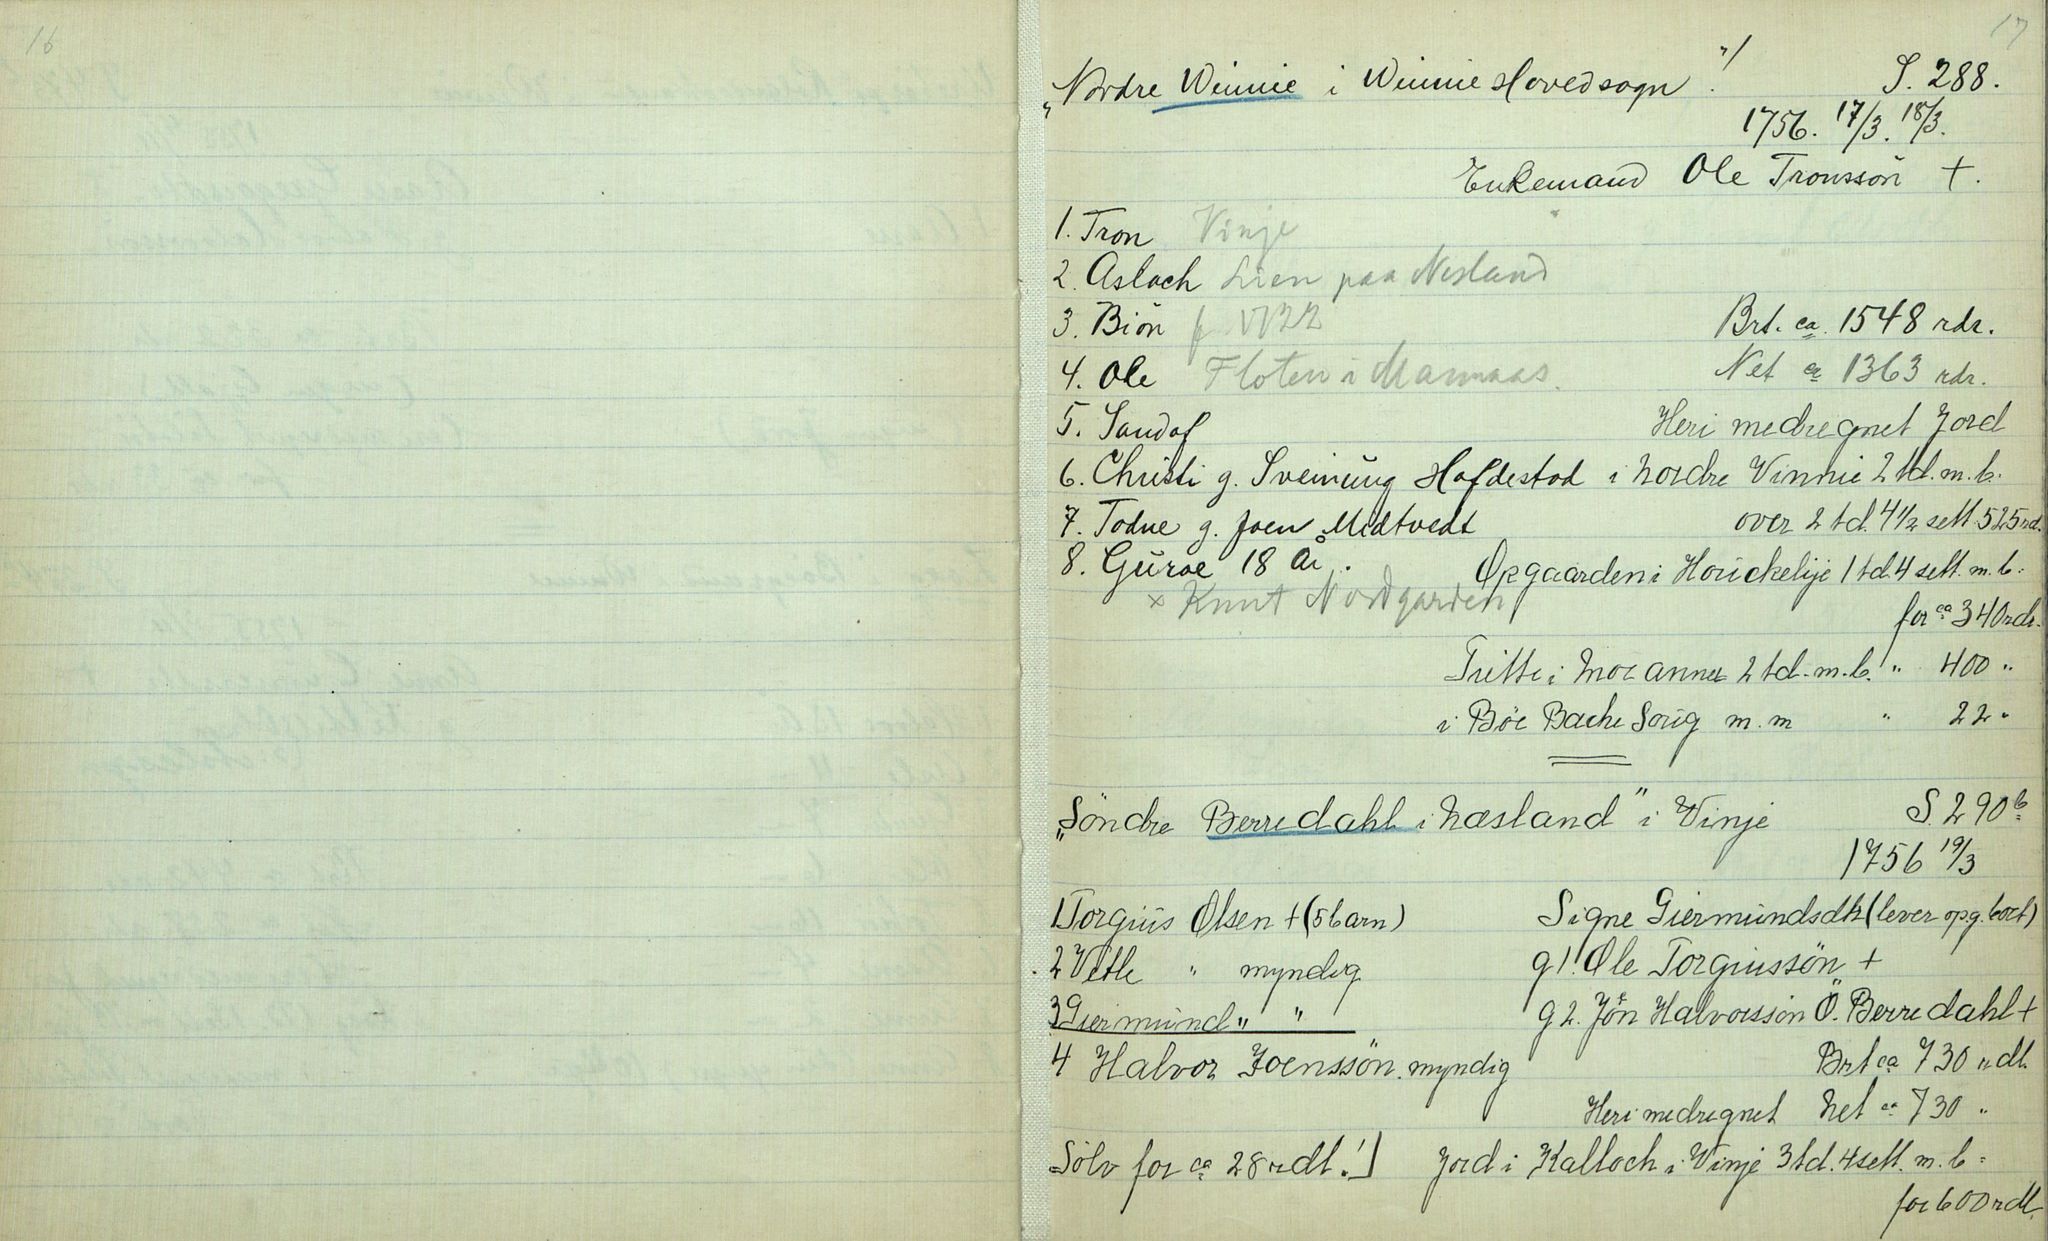 16
17
„Nordre Winnie i Winnie Hovedsogn". S. 288.
1756. 17/3. 18/3.
Enkemand Ole Tronssön +.
1. Tron Vinje
2. Aslach Lien paa Nesland
3. Biön Brt. ca. 1548 rdr.
4. Ole Floten i Mannaas. Net ca 1363 rdr.
5. Sandof Heri medregnet Jord
6. Christi g. Sveinung Hofdestad i Nordre Vinnie 2 td. m. b.
7. Todne g. Joen Midtvedt over 2 td. 4 1/2 sett. 525 rd.
8. Guroe 18 år. Opgaarden i Houckelije 1 td. 4 sett. m. b.
x Knut Nordgarden
for ca 340 rdr.
Tritte i 2 td. m. b. " 400 "
i Böe Bache Soug m. m " 22 "
„Söndre Berredahl i Næsland" i Vinje S. 290 b
1756 19/3
1 Torgius Olsen + (5 barn) Signe Giermundsdtr (lever op.g. bort)
2 Vetle " myndig g 1. Ole Torgiussön +
3 Giermund " " g 2. Jön Halvorssön Ö. Berredahl +
4 Halvor Joenssön. myndig Brt ca 730 rdl.
Heri medregnet Net ca 730 "
Sölv for ca 28 rdl.!] Jord i Kalloch i Vinje 3 td. 4 sett. m. b.
for 600 rdl.